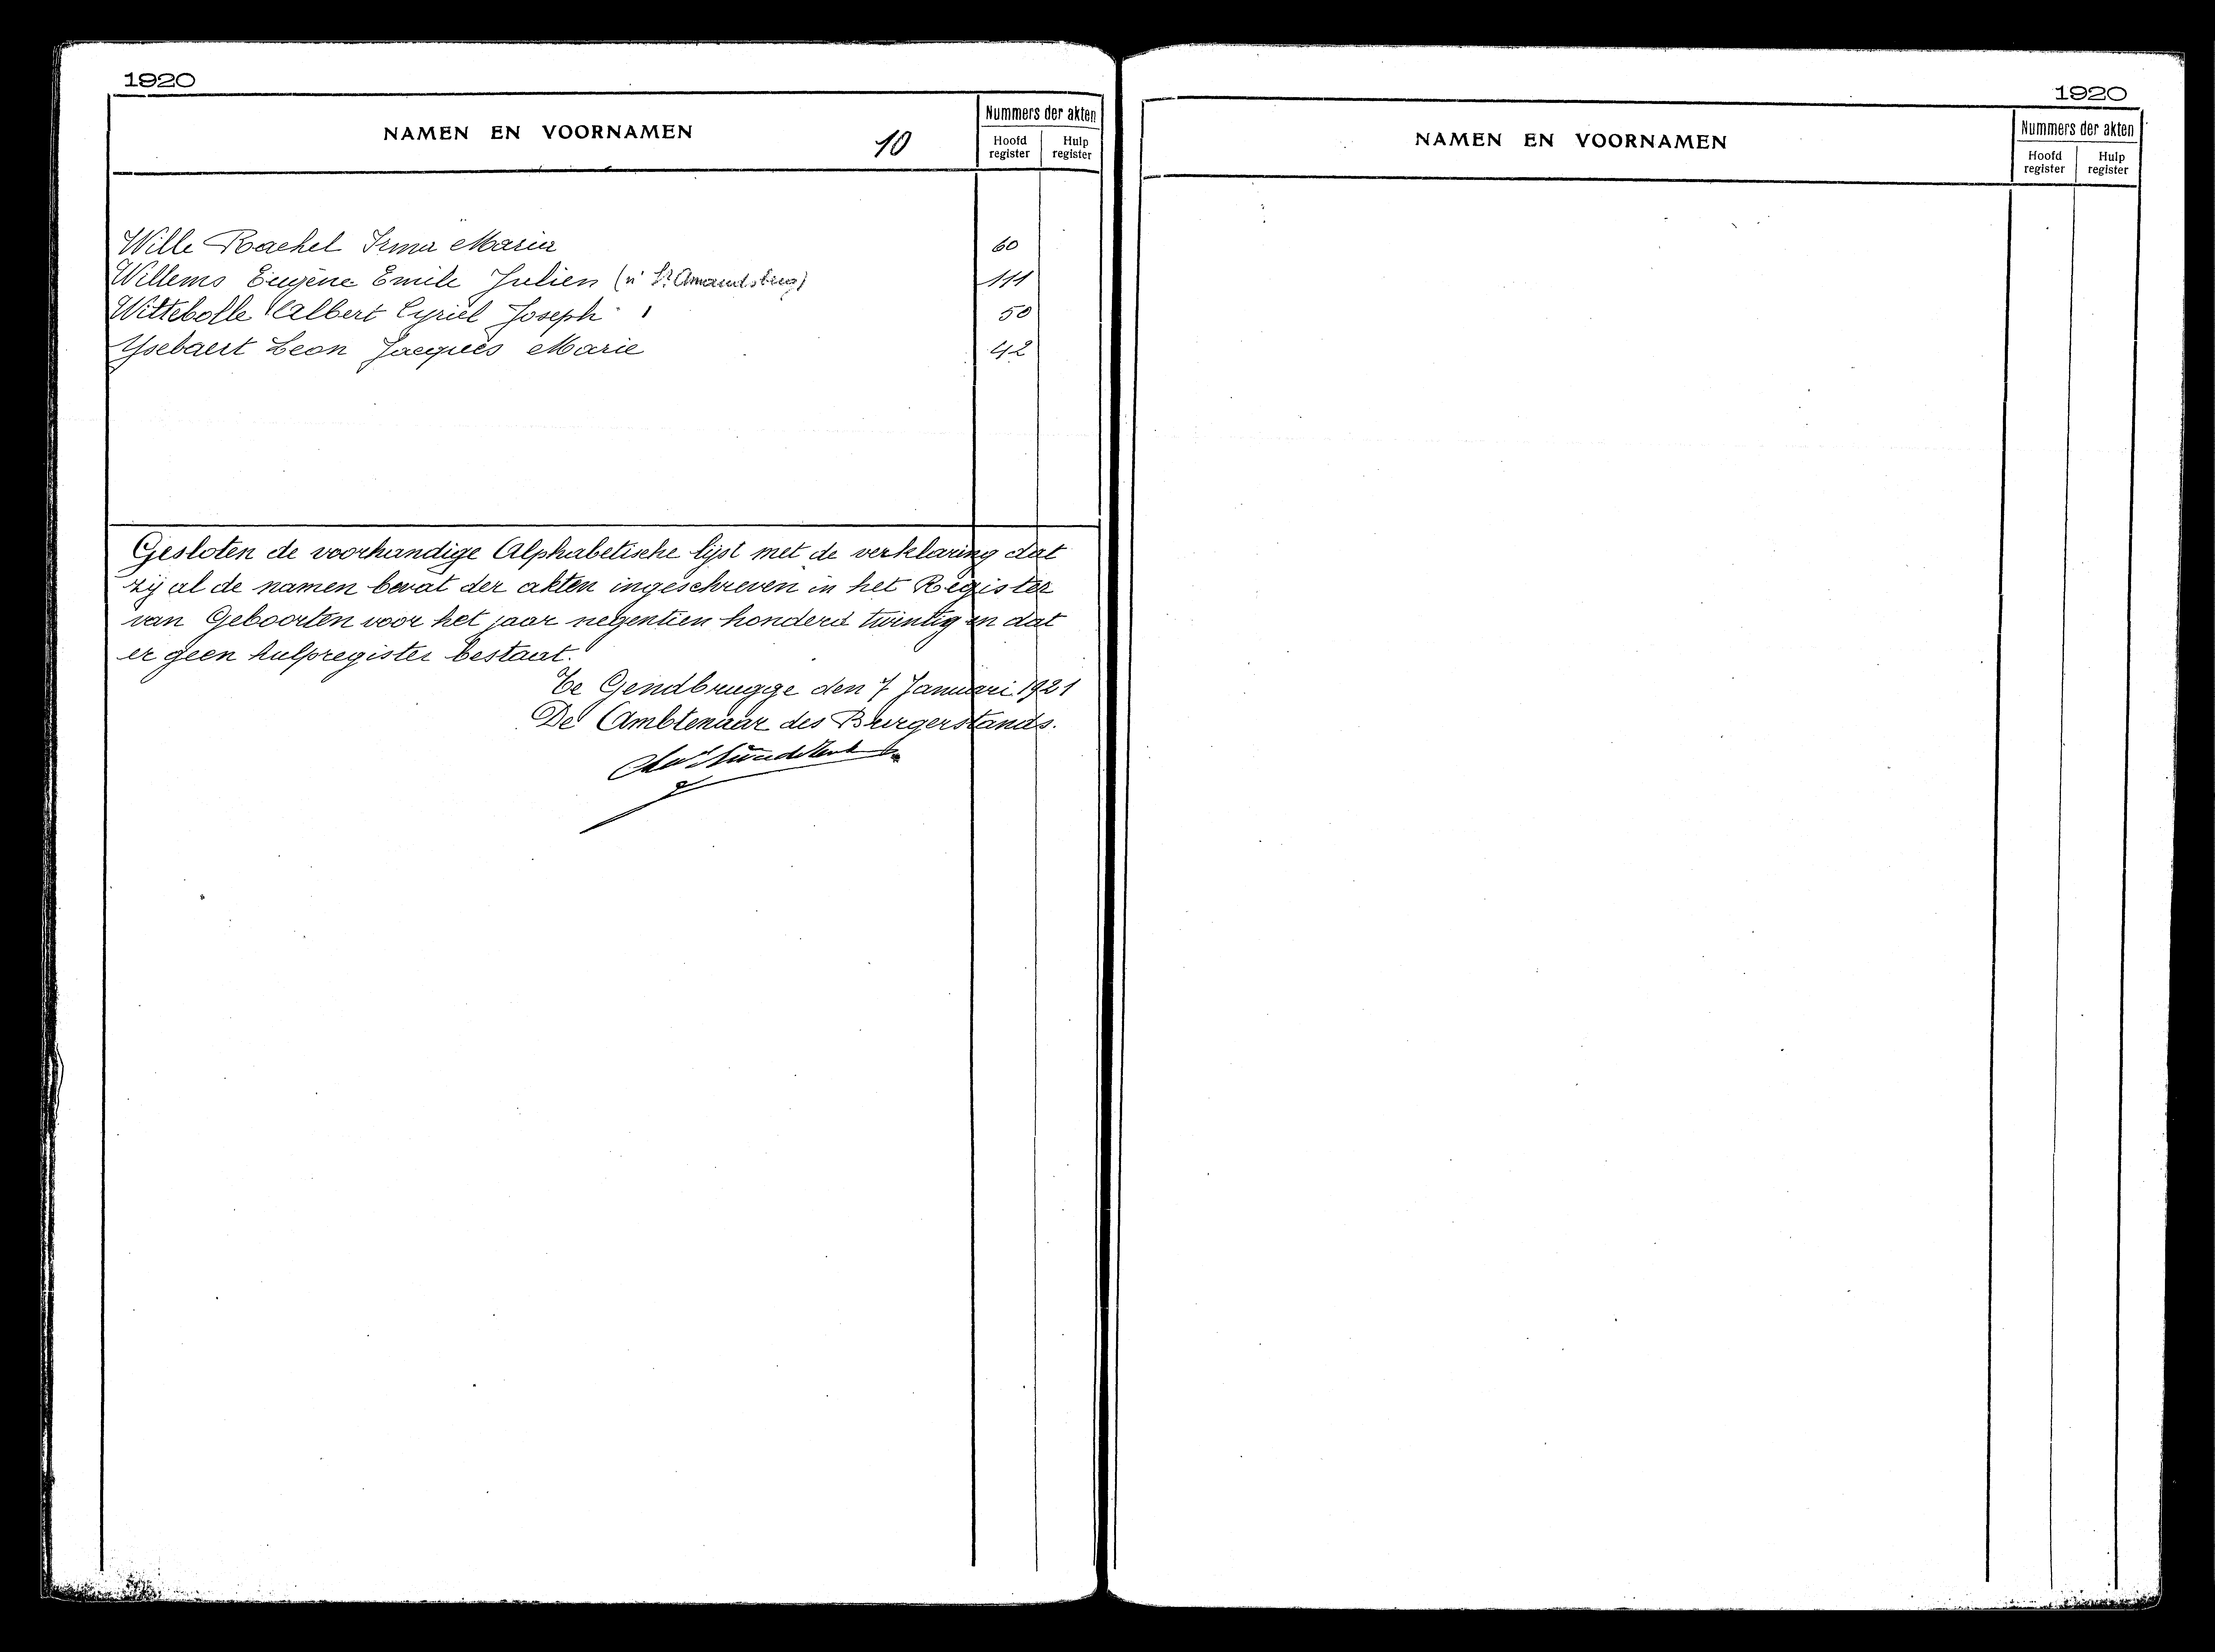 1920
NAMEN EN VOORNAMEN
10
Nummers der akten
Hoofd register
Hulp register
Wille Rachel Irma Maria 60
Willems Eugène Emile Julien (n' St Amandsberg) 111
Wittebolle Albert Cyriel Joseph 50
Ysebaert Leon Jacques Marie 42
Gesloten de voorhandige Alphabetische lijst met de verklaring dat
zij al de namen bevat der akten ingeschreven in het Register
van Geboorten voor het jaar negentien honderd twintig en dat
er geen hulpregister bestaat.
Te Gendbrugge den 7 Januari 1921
De Ambtenaar des Burgerstands.
1920
NAMEN EN VOORNAMEN
Nummers der akten
Hoofd register
Hulp register